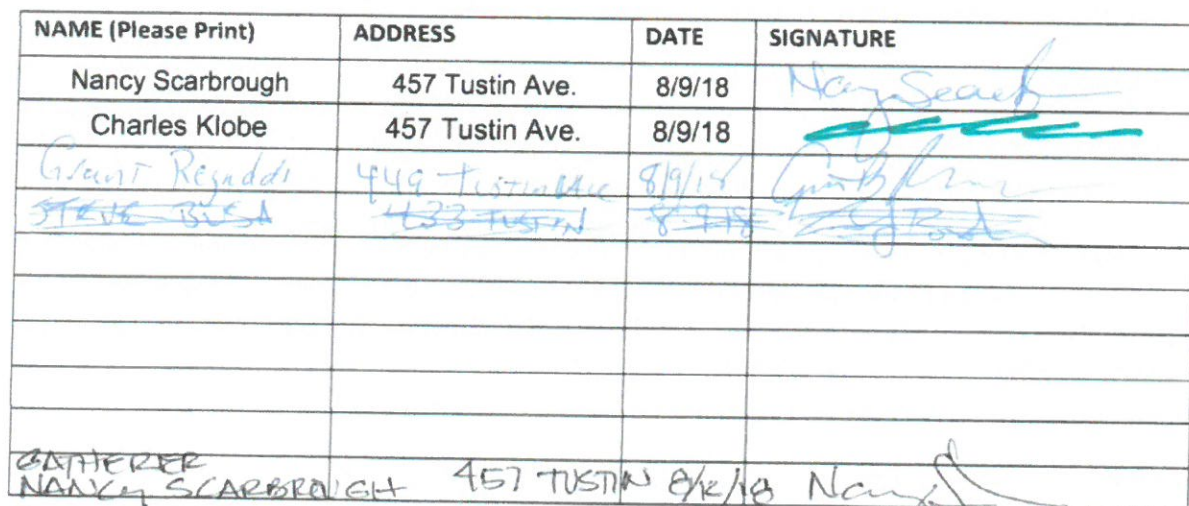 NAME (Please Print) ADDRESS DATE SIGNATURE
Nancy Scarbrough 457 Tustin Ave. 8/9/18
Charles Klobe 457 Tustin Ave. 8/9/18
Grant Reynolds 449 Tustin Ave 8/9/18
STEVE 433 TUSTIN 8-9-18
GATHERER
NANCY SCARBROUGH 457 TUSTIN 8/12/18